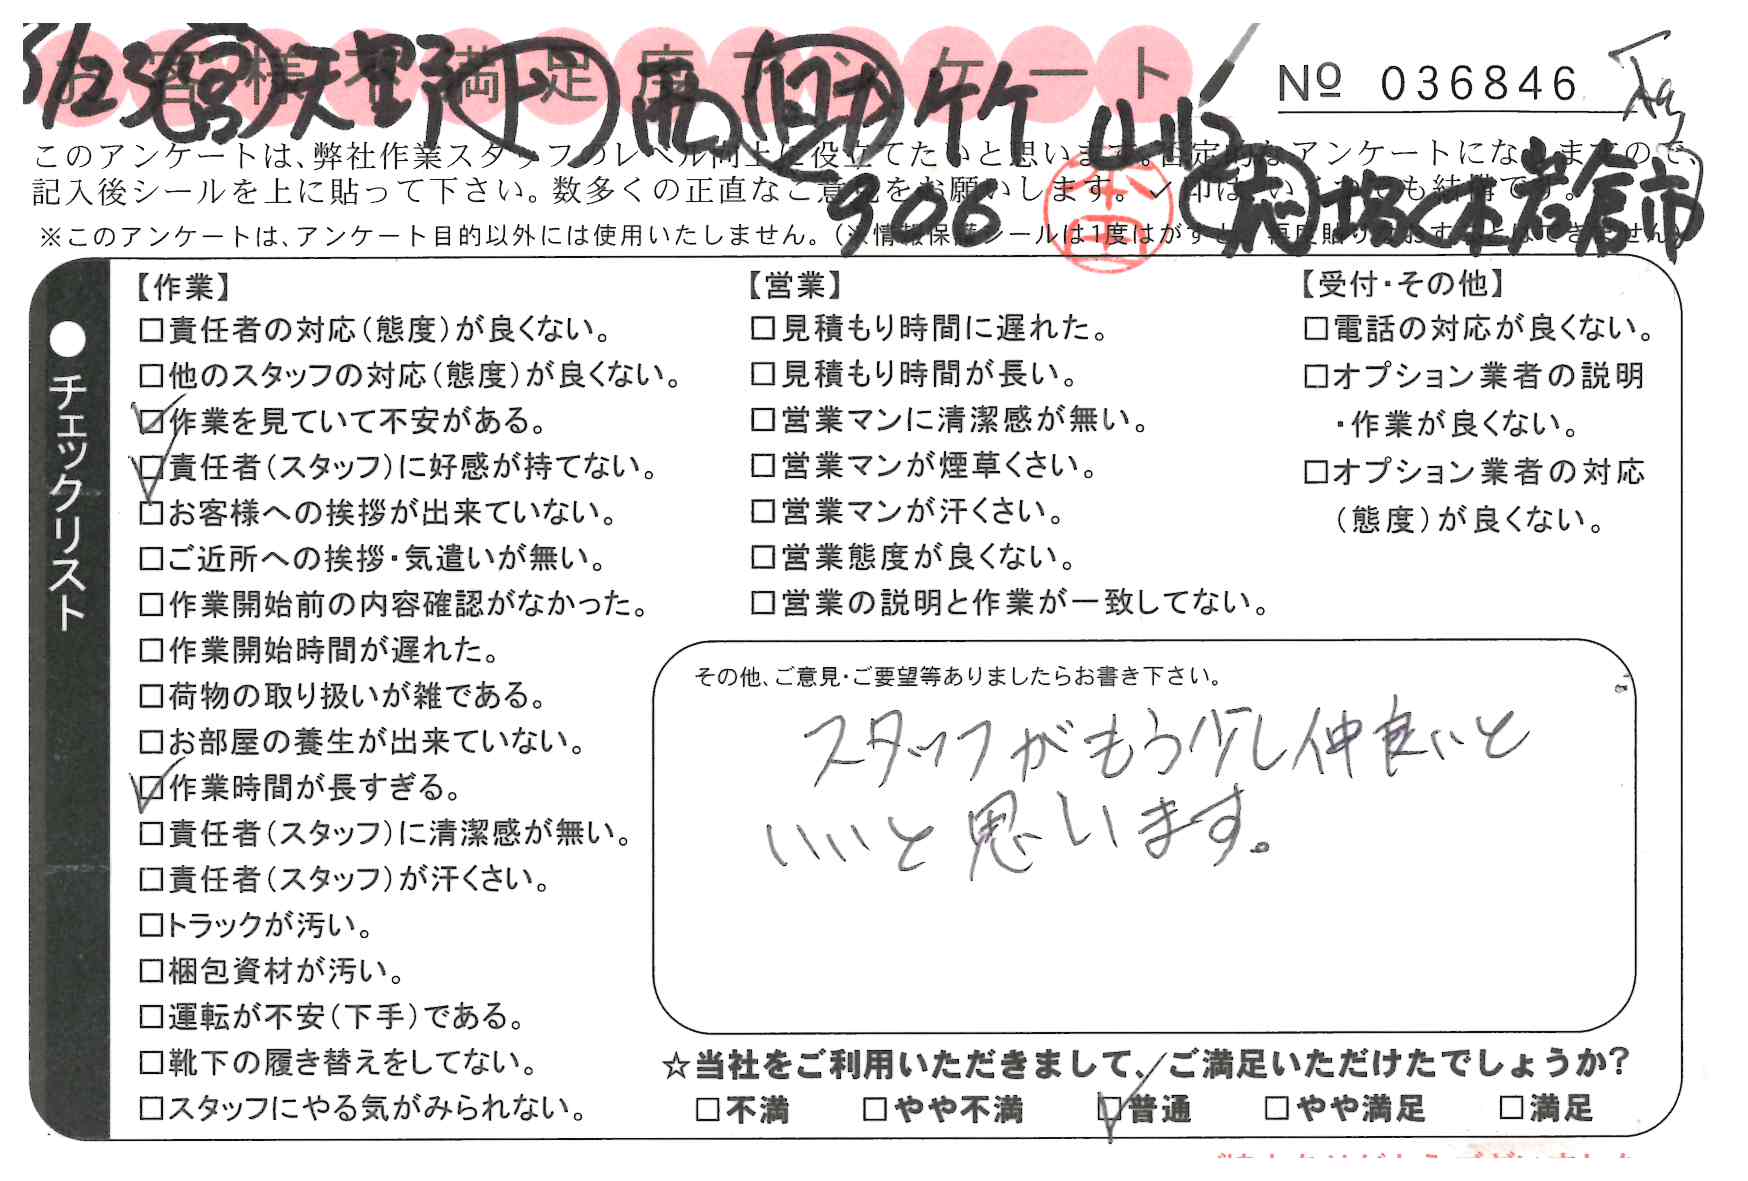 お客様不満足度アンケート
№ 036846
3/23 宮 矢野 ト 助 竹
906
岩倉市
このアンケートは、弊社作業スタッフのレベル向上に役立てたいと思います。否定的なアンケートになりますので、
記入後シールを上に貼って下さい。数多くの正直なご意見をお願いします。✓印はいくつでも結構です。
※このアンケートは、アンケート目的以外には使用いたしません。(※情報保護シールは1度はがすと、再度貼りなおすことはできません)
●チェックリスト
【作業】
□責任者の対応(態度)が良くない。
□他のスタッフの対応(態度)が良くない。
☑作業を見ていて不安がある。
☑責任者(スタッフ)に好感が持てない。
□お客様への挨拶が出来ていない。
□ご近所への挨拶・気遣いが無い。
□作業開始前の内容確認がなかった。
□作業開始時間が遅れた。
□荷物の取り扱いが雑である。
□お部屋の養生が出来ていない。
☑作業時間が長すぎる。
□責任者(スタッフ)に清潔感が無い。
□責任者(スタッフ)が汗くさい。
□トラックが汚い。
□梱包資材が汚い。
□運転が不安(下手)である。
□靴下の履き替えをしてない。
□スタッフにやる気がみられない。
【営業】
□見積もり時間に遅れた。
□見積もり時間が長い。
□営業マンに清潔感が無い。
□営業マンが煙草くさい。
□営業マンが汗くさい。
□営業態度が良くない。
□営業の説明と作業が一致してない。
【受付・その他】
□電話の対応が良くない。
□オプション業者の説明
・作業が良くない。
□オプション業者の対応
(態度)が良くない。
その他、ご意見・ご要望等ありましたらお書き下さい。
スタッフがもう少し仲良いと
いいと思います。
☆当社をご利用いただきまして、ご満足いただけたでしょうか?
□不満 □やや不満 ☑普通 □やや満足 □満足